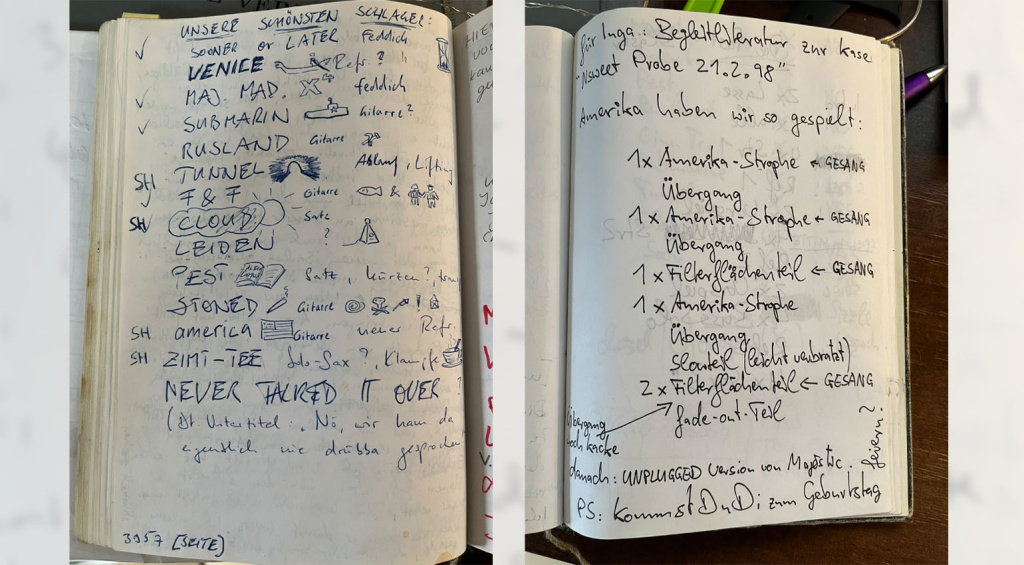 UNSERE SCHÖNSTEN SCHLAGER:
✓ SOONER or LATER feddich
VENICE Refr. ?
✓ MAJ. MAD. feddich
✓ SUBMARIN Gitarre?
RUSLAND Gitarre
SH TUNNEL Ablauf, Lüftung
F & F Gitarre &
SH CLOUD Satz
LEIDEN ?
PEST Satz, kürzen?,
STONED Gitarre !
SH america Gitarre neuer Refr.
SH ZIMT-TEE Solo-Sax ?, Klampfe
NEVER TALKED IT OVER ?
(Dt. Untertitel: "Nö, wir ham da
eigentlich nie drübba gesprochen
3957 [SEITE]
für Inga: Begleitliteratur zur Kase
"Nsweet Probe 21.2.98"
Amerika haben wir so gespielt:
1x Amerika-Strophe ← GESANG
Übergang
1x Amerika-Strophe ← GESANG
Übergang
1x Filterflächenteil ← GESANG
1x Amerika-Strophe
Übergang
Slowteil (leicht verbratzt)
2x Filterflächenteil ← GESANG
fade-out-Teil
Übergang
noch kacke
danach: UNPLUGGED Version von Majestic.
PS: Kommst Du Di zum Geburtstag
feiern?